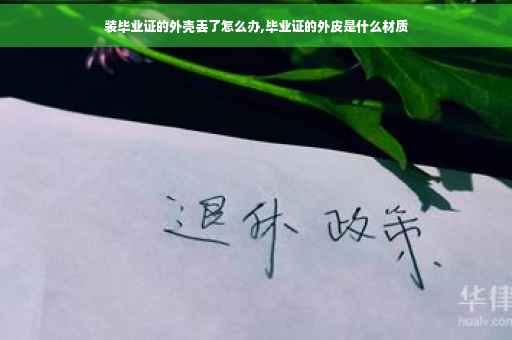 装毕业证的外壳丢了怎么办,毕业证的外皮是什么材质
退休 政策
华律
hualv.com